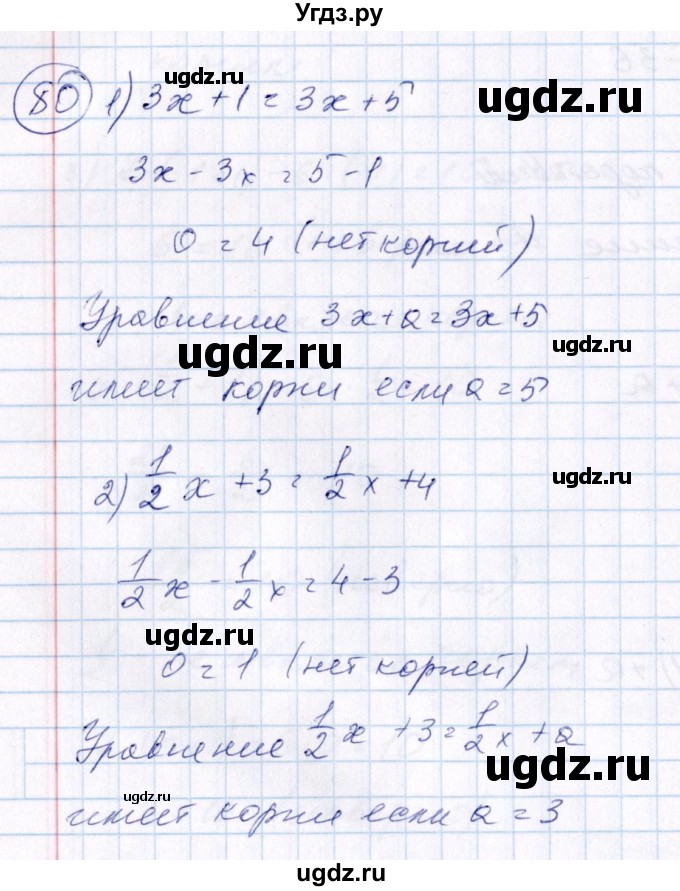 Угдз.ру
80 1) 3x + 1 = 3x + 5
3x - 3x = 5 - 1
0 = 4 (нет корний)
Уравнение 3x + a = 3x + 5
имеет корни если a = 5
2) 1/2 x + 3 = 1/2 x + 4
1/2 x - 1/2 x = 4 - 3
0 = 1 (нет корней)
Уравнение 1/2 x + 3 = 1/2 x + a
имеет корни если a = 3
ugdz.ru
ugdz.ru
ugdz.ru
ugdz.ru
ugdz.ru
ugdz.ru
ugdz.ru
ugdz.ru